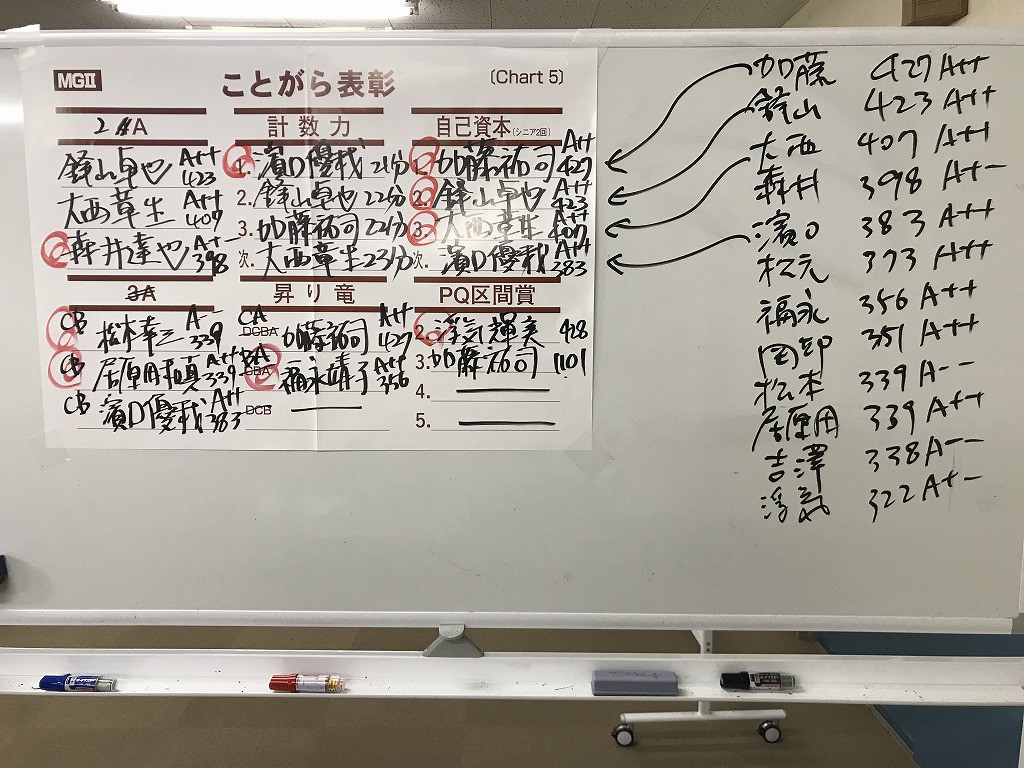 MGⅡ
ことがら表彰
(Chart 5)
2 A
鈴山卓也 A++ 423
大西章生 A++ 407
2 森井達也 A+- 398
計数力
1. 濱口優哉 21分
2. 鈴山卓也 22分
3. 加藤祐司 22分
次. 大西章生 23分
自己資本(シニア2回)
1. 加藤祐司 A++ 427
2. 鈴山卓也 A++ 423
3. 大西章生 A++ 407
次. 濱口優哉 A++ 383
3A
CB 松本幸三 A-- 339
CB 居原田 A++ 339
CB 濱口優哉 A++ 383
昇り竜
CA DCBA 加藤祐司 A++ 427
CBA 福永靖子 A++ 356
DCB
PQ区間賞
2. 浮気輝実 428
3. 加藤祐司 1101
4.
5.
加藤 427 A++
鈴山 423 A++
大西 407 A++
森井 398 A+-
濱口 383 A++
松元 373 A++
福永 356 A++
岡部 351 A++
松本 339 A--
居原田 339 A++
吉澤 338 A--
浮気 322 A+-